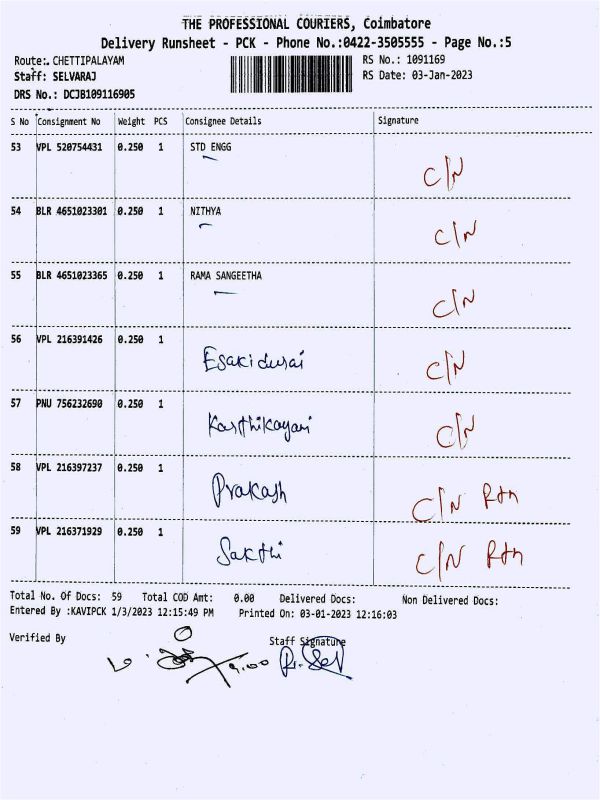 THE PROFESSIONAL COURIERS, Coimbatore
Delivery Runsheet - PCK - Phone No.:0422-3505555 - Page No.:5
Route:. CHETTIPALAYAM RS No.: 1091169
Staff: SELVARAJ RS Date: 03-Jan-2023
DRS No.: DCJB109116905
S No Consignment No Weight PCS Consignee Details Signature
53 VPL 520754431 0.250 1 STD ENGG C/N
54 BLR 4651023301 0.250 1 NITHYA C/N
55 BLR 4651023365 0.250 1 RAMA SANGEETHA C/N
56 VPL 216391426 0.250 1 Esakidurai C/N
57 PNU 756232690 0.250 1 Karthikayani C/N
58 VPL 216397237 0.250 1 Prakash C/N Rtn
59 VPL 216371929 0.250 1 Sakthi C/N Rtn
Total No. Of Docs: 59 Total COD Amt: 0.00 Delivered Docs: Non Delivered Docs:
Entered By :KAVIPCK 1/3/2023 12:15:49 PM Printed On: 03-01-2023 12:16:03
Verified By Staff Signature